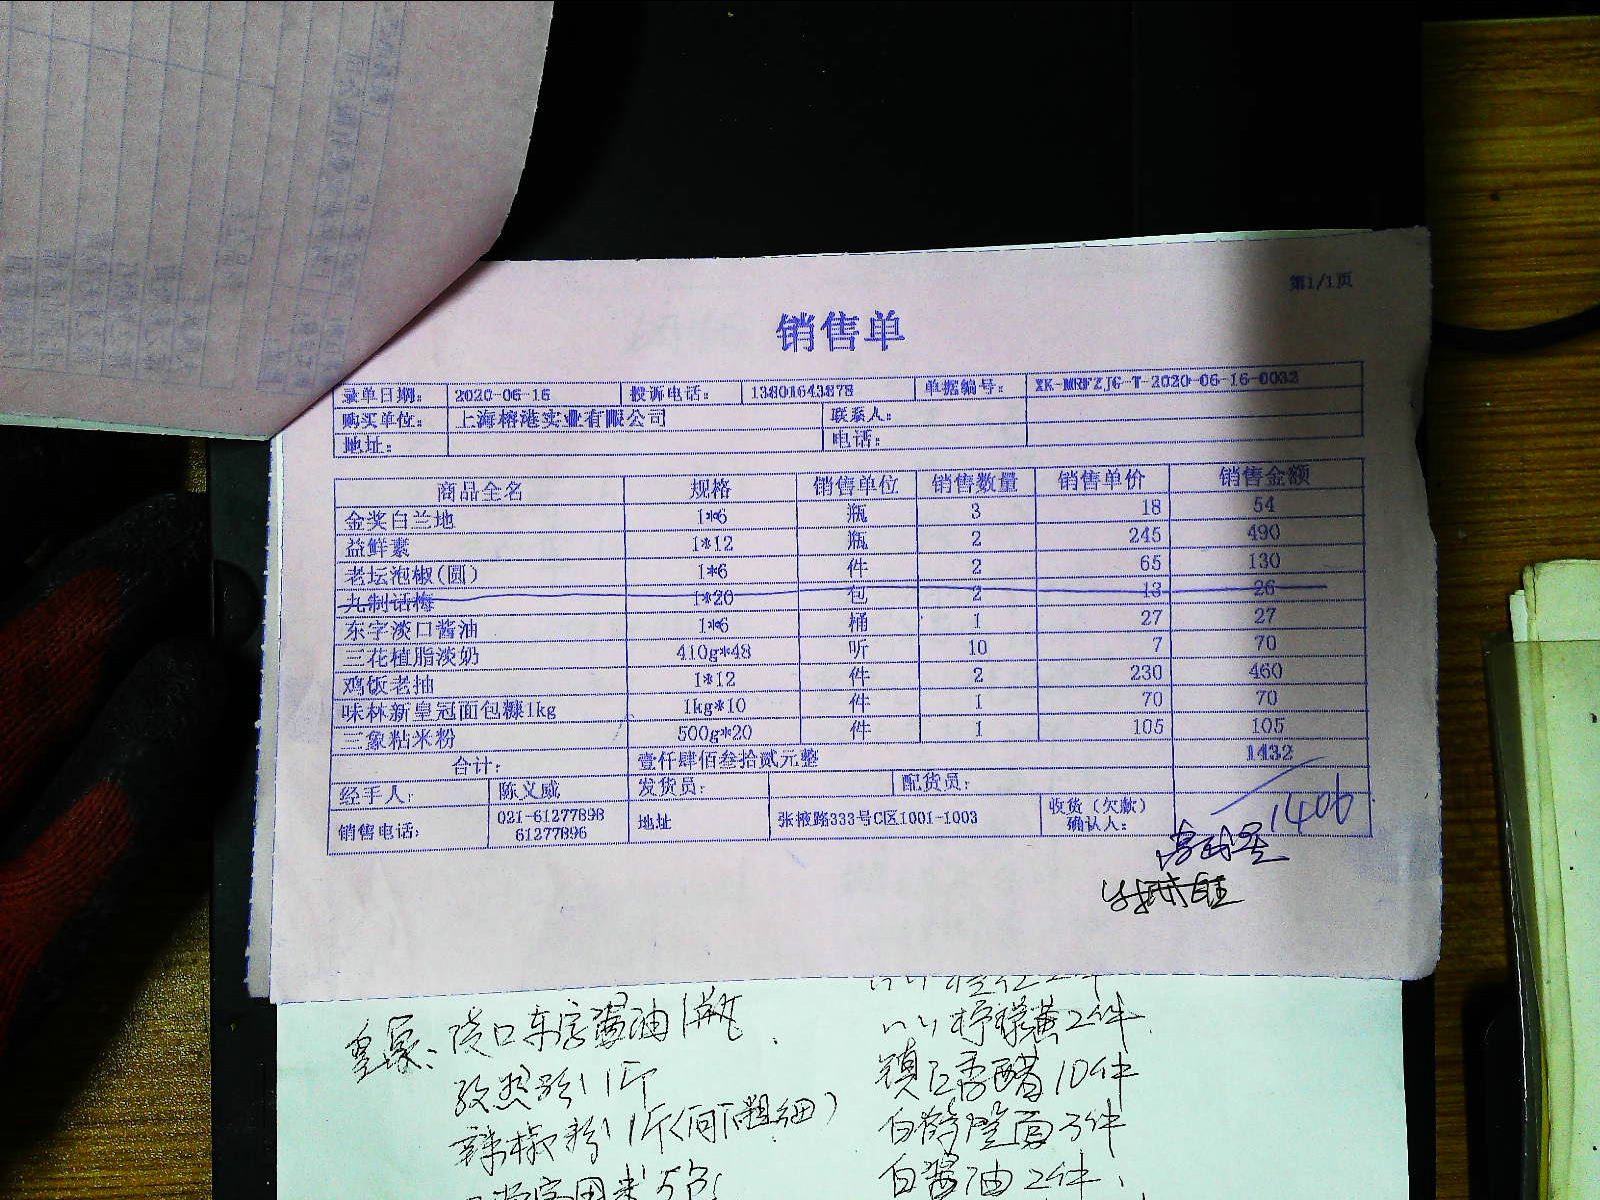 第1/1页
销售单
录单日期: 2020-06-16 投诉电话: 13801643878 单据编号: XK-MRFZJG-T-2020-06-16-0032
购买单位: 上海榕港实业有限公司 联系人:
地址: 电话:
商品全名 规格 销售单位 销售数量 销售单价 销售金额
金奖白兰地 1*6 瓶 3 18 54
益鲜素 1*12 瓶 2 245 490
老坛泡椒(圆) 1*6 件 2 65 130
九制话梅 1*20 包 2 13 26
东字淡口酱油 1*6 桶 1 27 27
三花植脂淡奶 410g*48 听 10 7 70
鸡饭老抽 1*12 件 2 230 460
味林新皇冠面包糠1kg 1kg*10 件 1 70 70
三象粘米粉 500g*20 件 1 105 105
合计: 壹仟肆佰叁拾贰元整 1432
经手人: 陈义威 发货员: 配货员:
销售电话: 021-61277898 61277896 地址 张掖路333号C区1001-1003 收货(欠款)确认人:
1406
淡口东字酱油1瓶
孜然粉1斤
辣椒粉1斤
柠檬黄2件
镇江香醋10件
白酱油2件